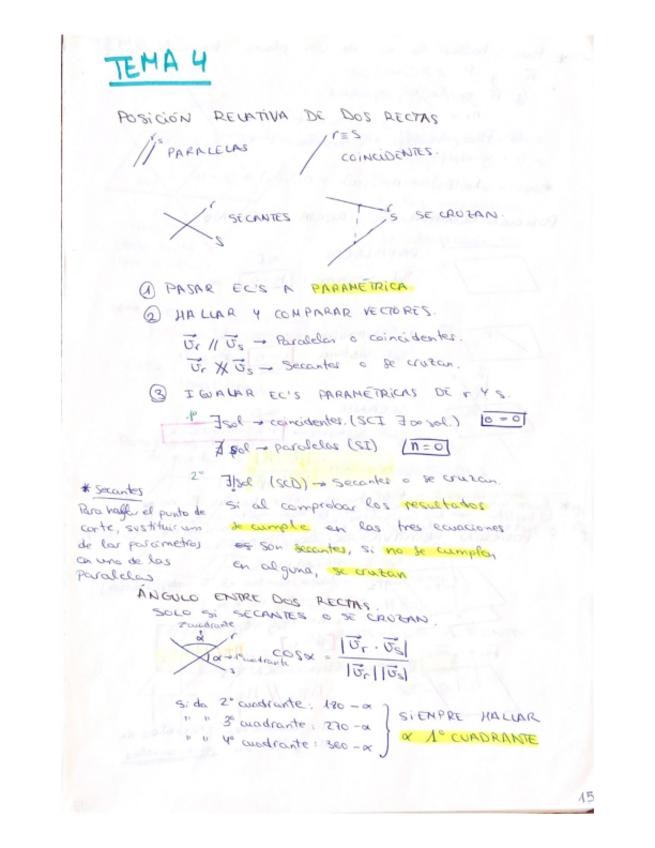 TEMA 4
POSICIÓN RELATIVA DE DOS RECTAS
r s PARALELAS
r≡s COINCIDENTES.
r s SECANTES
r s SE CRUZAN.
① PASAR EC'S A PARAMÉTRICA
② HALLAR Y COMPARAR VECTORES.
v⃗r // v⃗s → Paralelas o coincidentes.
v⃗r ∦ v⃗s → Secantes o se cruzan.
③ IGUALAR EC'S PARAMÉTRICAS DE r Y s.
∃ sol → coincidentes. (SCI ∃ ∞ sol.) 0=0
∄ sol → paralelas (SI) n=0
2º ∃! sol (SCD) → Secantes o se cruzan.
Si al comprobar los resultados
se cumple en las tres ecuaciones
son secantes, si no se cumplen
en alguna, se cruzan
* Secantes
Para hallar el punto de
corte, sustituir um
de los parámetros
en una de las
paralelas
ÁNGULO ENTRE DOS RECTAS.
SOLO SI SECANTES O SE CRUZAN.
2º cuadrante
α r
α → 1º cuadrante
s
cosα = |v⃗r · v⃗s| / |v⃗r| |v⃗s|
Si da 2º cuadrante: 180 - α
" " 3º cuadrante: 270 - α
" " 4º cuadrante: 360 - α
SIEMPRE HALLAR
α 1º CUADRANTE
15